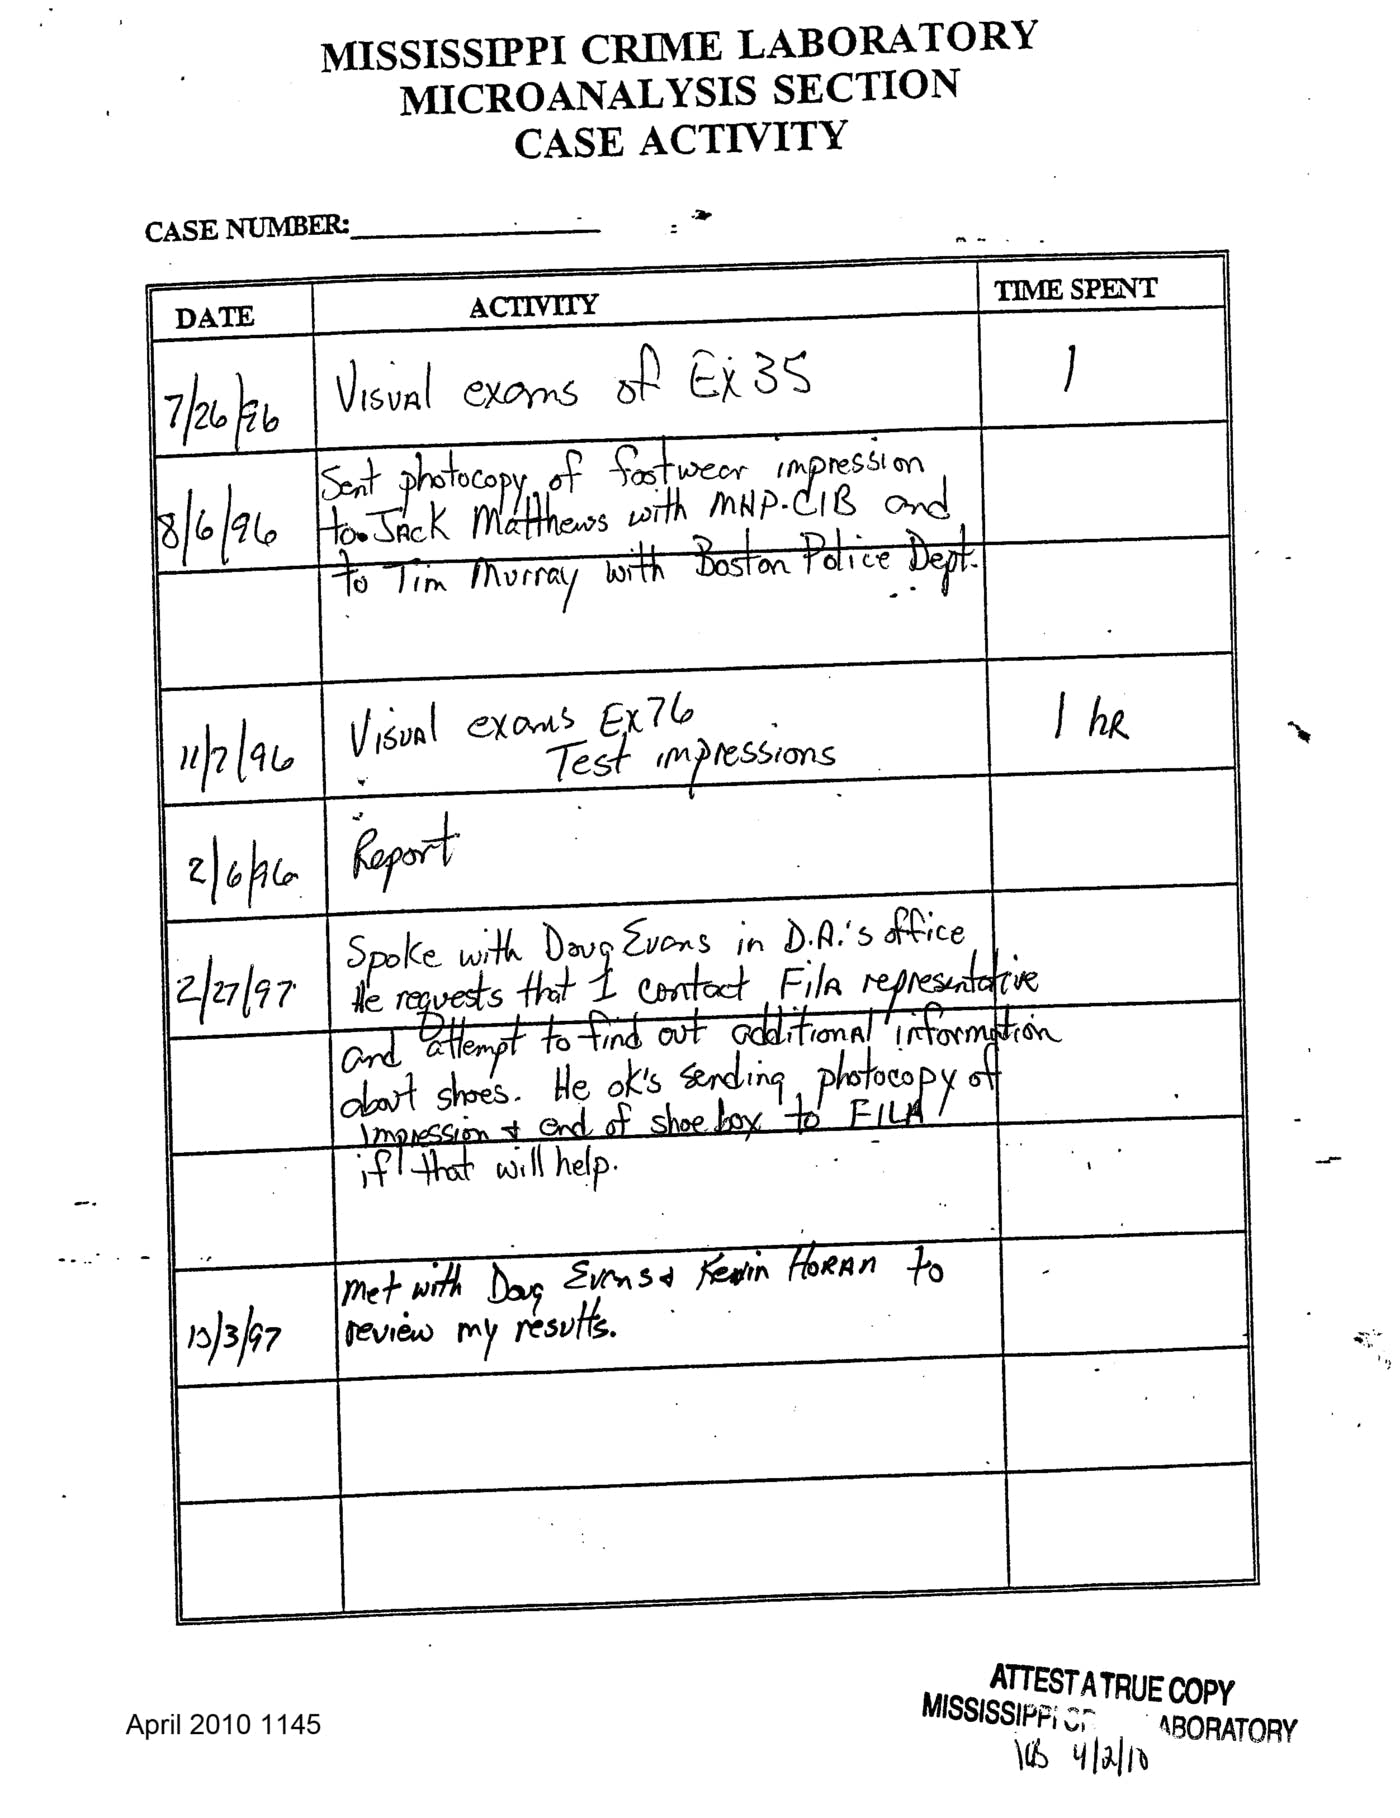 MISSISSIPPI CRIME LABORATORY
MICROANALYSIS SECTION
CASE ACTIVITY
CASE NUMBER:
DATE ACTIVITY TIME SPENT
7/26/96 Visual exams of Ex 35 1
Sent photocopy of footwear impression
8/6/96 to Jack Matthews with MHP-CIB and
to Tim Murray with Boston Police Dept.
11/7/96 Visual exams Ex 76 1 hR
Test impressions
2/6/96 Report
Spoke with Doug Evans in D.A.'s office
2/27/97 He requests that I contact Fila representative
and attempt to find out additional information
about shoes. He ok's sending photocopy of
impression & end of shoe box to FILA
if that will help.
Met with Doug Evans & Kevin Horan to
/3/97 review my results.
ATTEST A TRUE COPY
MISSISSIPPI ABORATORY
4/2/10
April 2010 1145